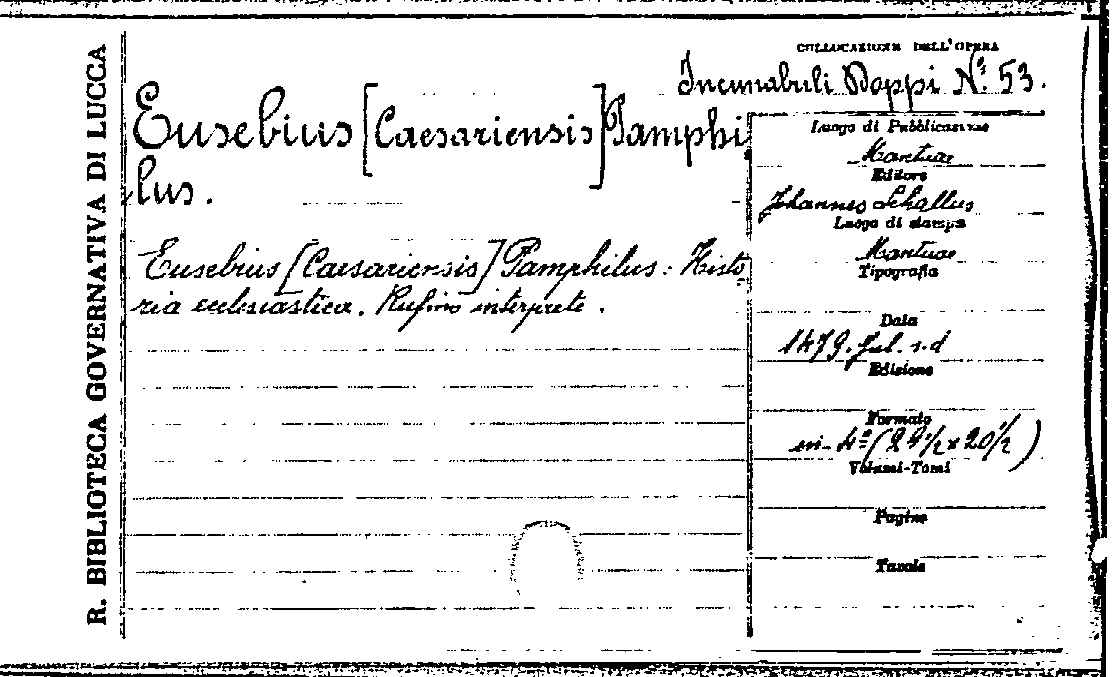 R. BIBLIOTECA GOVERNATIVA DI LUCCA
COLLOCAZIONE DELL'OPERA
Incunabuli Doppi N.° 53.
Eusebius [Caesariensis] Pamphi
lus.
Eusebius [Caesariensis] Pamphilus: Histo-
ria ecclesiastica. Rufino interprete.
Luogo di Pubblicazione
Mantuae
Editore
Johannes Schallus
Luogo di stampa
Mantuae
Tipografia
Data
1479. Jul. s.d
Edizione
Formato
in-4° (29½ x 20½)
Volumi-Tomi
Pagine
Tavole